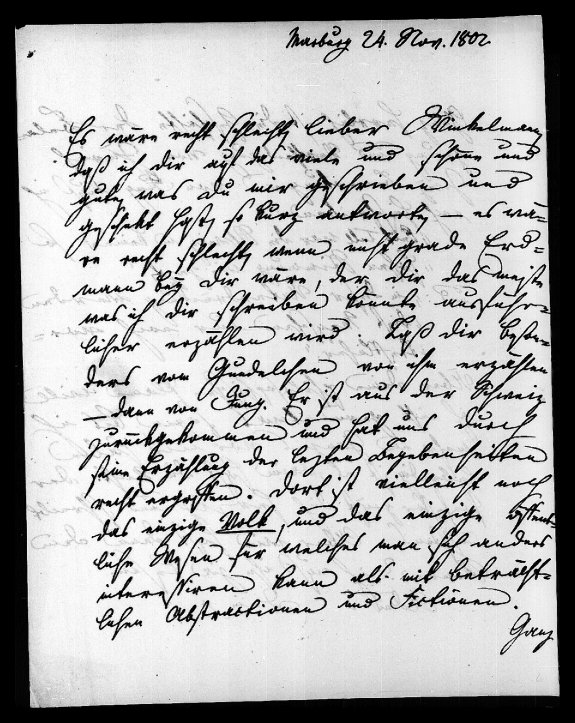 Marburg 24. Nov. 1802.
Es wäre recht schlecht, lieber Winkelmann,
daß ich dir auf das viele und schöne und
gute, was du mir geschrieben und
geschikt hast, so kurz antworte, — es wä-
re recht schlecht, wenn nicht grade Erd-
mann bey dir wäre, der dir das meiste
was ich dir schreiben könnte ausführ-
licher erzählen wird. Laß dir beson-
ders vom Gundelchen von ihm erzählen
— dann von Jung. Er ist aus der Schweiz
zurückgekommen und hat uns durch
seine Erzählung der lezten Begebenheiten
recht ergriffen. Dort ist vielleicht noch
das einzige Volk, und das einzige öffent-
liche Wesen für welches man sich anders
interessiren kann als mit beträcht-
lichen Abstractionen und Fictionen.
Ganz